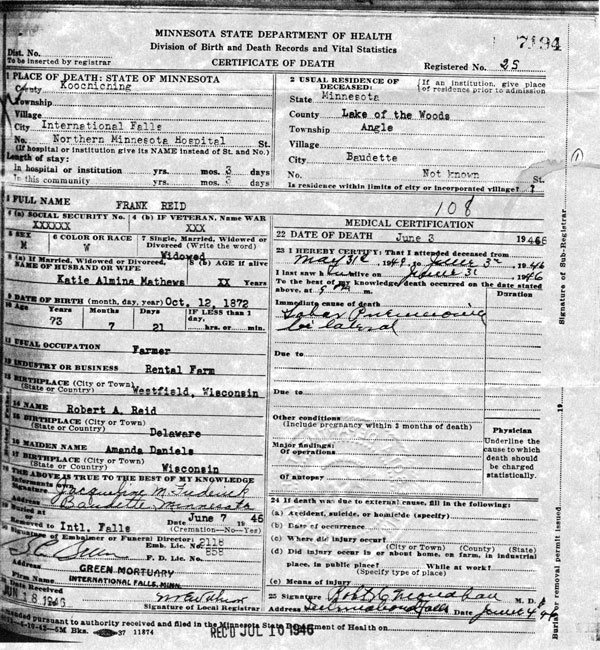 MINNESOTA STATE DEPARTMENT OF HEALTH
Division of Birth and Death Records and Vital Statistics
CERTIFICATE OF DEATH
7194
Dist. No.
To be inserted by registrar
Registered No. 25
1 PLACE OF DEATH: STATE OF MINNESOTA
County Koochiching
Township
Village
City International Falls
No. Northern Minnesota Hospital St.
(If hospital or institution give its NAME instead of St. and No.)
Length of stay:
In hospital or institution yrs. mos. 3 days
In this community yrs. mos. 3 days
2 USUAL RESIDENCE OF DECEASED: (If an institution, give place of residence prior to admission
State Minnesota
County Lake of the Woods
Township Angle
Village
City Baudette
No. Not known St.
Is residence within limits of city or incorporated village? ?
3 FULL NAME FRANK REID
108
4 (a) SOCIAL SECURITY No. XXXXXX
4 (b) IF VETERAN, Name WAR XXX
5 SEX M
6 COLOR OR RACE W
7 Single, Married, Widowed or Divorced (Write the word) Widowed
8 (a) If Married, Widowed or Divorced, NAME OF HUSBAND OR WIFE Katie Almina Mathews
8 (b) AGE if alive XX Years
9 DATE OF BIRTH (month, day, year) Oct. 12, 1872
10 Age Years 73 Months 7 Days 21 IF LESS than 1 day, hrs. or min.
11 USUAL OCCUPATION Farmer
12 INDUSTRY OR BUSINESS Rental Farm
13 BIRTHPLACE (City or Town) (State or Country) Westfield, Wisconsin
14 NAME Robert A. Reid
15 BIRTHPLACE (City or Town) (State or Country) Delaware
16 MAIDEN NAME Amanda Daniels
17 BIRTHPLACE (City or Town) (State or Country) Wisconsin
THE ABOVE IS TRUE TO THE BEST OF MY KNOWLEDGE
Informants own Signature Jacqueline M. Frederick
Address Baudette Minnesota
Buried at
Removed to Intl. Falls Date June 7 1946
(Cremation—No—Yes)
Signature of Embalmer or Funeral Director:
Emb. Lic. No. 2118
F. D. Lic. No. 858
Address
Firm Name GREEN MORTUARY
INTERNATIONAL FALLS, MINN.
Date Received
JUN 18 1946
Signature of Local Registrar
MEDICAL CERTIFICATION
22 DATE OF DEATH June 3 1946
23 I HEREBY CERTIFY: That I attended deceased from
May 31st 194 to June 3rd 1946
I last saw him alive on June 3d 1946
To the best of my knowledge death occurred on the date stated
above, at 5 m.
Duration
Immediate cause of death
Lobar Pneumonia
bi lateral
Due to
Due to
Other conditions
(Include pregnancy within 3 months of death)
Major findings:
Of operations
Of autopsy
Physician
Underline the cause to which death should be charged statistically.
24 If death was due to external cause, fill in the following:
(a) Accident, suicide, or homicide (specify)
(b) Date of occurrence
(c) Where did injury occur?
(City or Town) (County) (State)
(d) Did injury occur in or about home, on farm, in industrial
place, in public place? While at work?
(Specify type of place)
(e) Means of injury
25 Signature M. D.
Address International Falls Date June 4 46
pursuant to authority received and filed in the Minnesota State Department of Health on
-10-42—5M Bks. 37 11874
REC'D JUL 10 1946
Signature of Sub-Registrar
19
Burial or removal permit issued
1